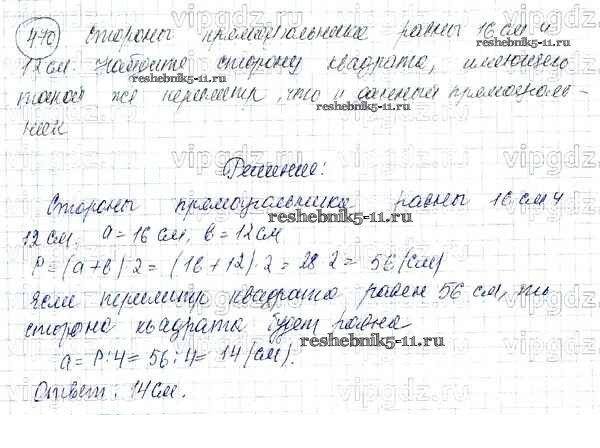 470 Стороны прямоугольника равны 16 см и
12 см. Найдите сторону квадрата, имеющего
такой же периметр, что и данный прямоуголь-
ник
Решение:
Стороны прямоугольника равны 16 см и
12 см. a = 16 см, b = 12 см
P = (a + b) · 2 = (16 + 12) · 2 = 28 · 2 = 56 (см)
Если периметр квадрата равен 56 см, то
сторона квадрата будет равна
a = P : 4 = 56 : 4 = 14 (см).
Ответ: 14 см.
reshebnik5-11.ru
reshebnik5-11.ru
reshebnik5-11.ru
reshebnik5-11.ru
vipgdz